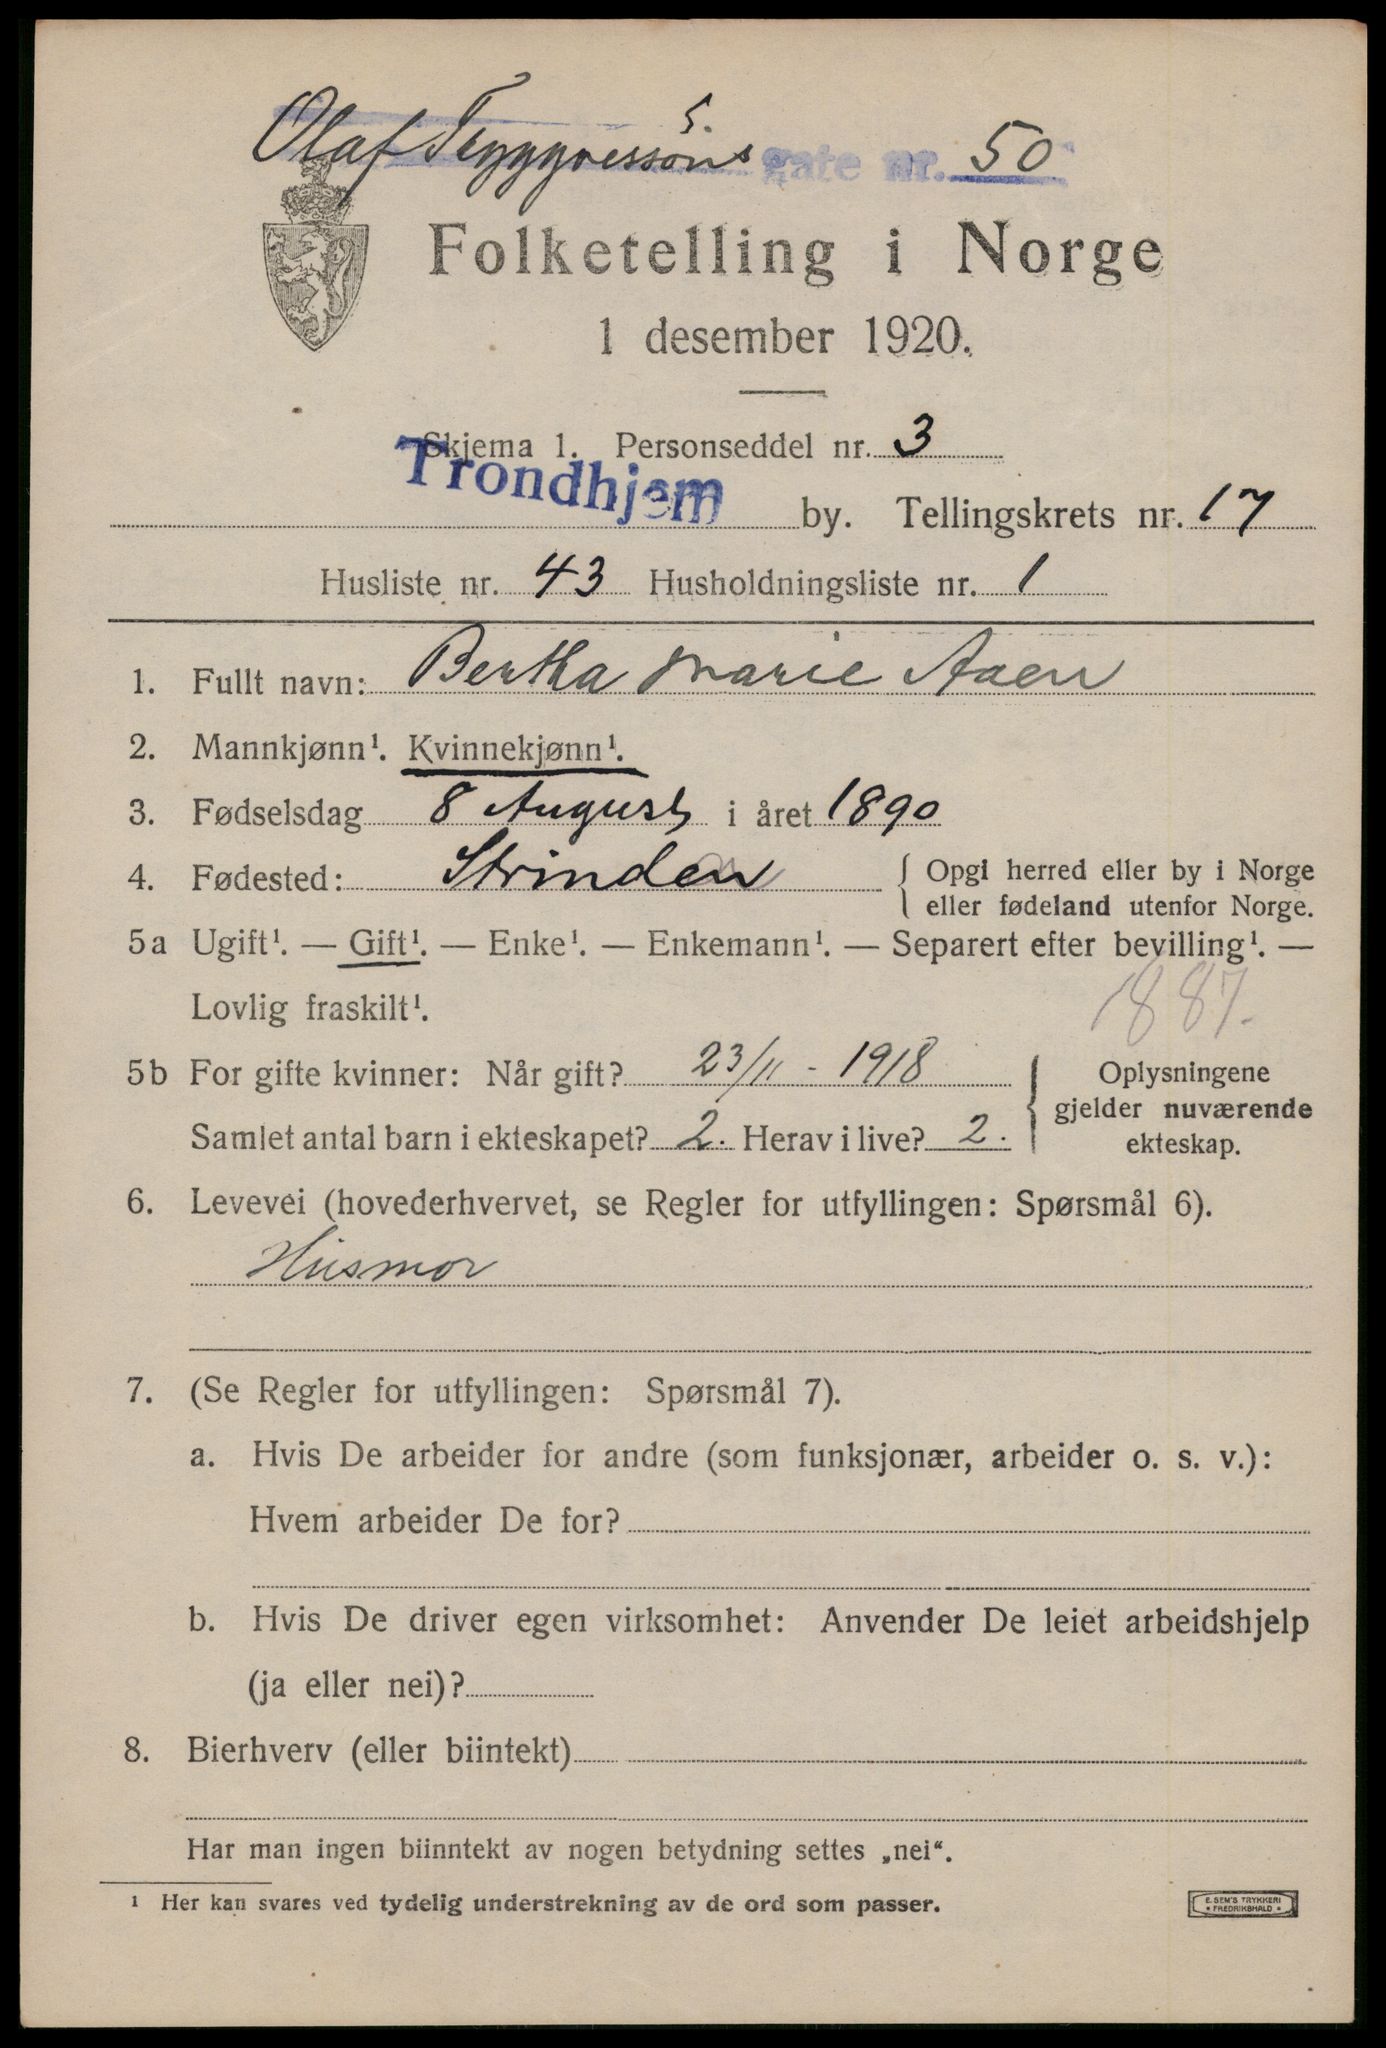 Olaf Tryggvessöns gate nr. 50
Folketelling i Norge
1 desember 1920.
Skjema 1. Personseddel nr. 3
Trondhjem by. Tellingskrets nr. 17
Husliste nr. 43 Husholdningsliste nr. 1
1. Fullt navn: Bertha Marie Aaen
2. Mannkjønn¹. Kvinnekjønn¹.
3. Fødselsdag 8 August i året 1890
4. Fødested: Strinden { Opgi herred eller by i Norge
eller fødeland utenfor Norge.
5a Ugift¹. — Gift¹. — Enke¹. — Enkemann¹. — Separert efter bevilling¹. —
Lovlig fraskilt¹. 1887.
5b For gifte kvinner: Når gift? 23/11 - 1918
Samlet antal barn i ekteskapet? 2. Herav i live? 2.
Oplysningene
gjelder nuværende
ekteskap.
6. Levevei (hovederhvervet, se Regler for utfyllingen: Spørsmål 6).
Husmor
7. (Se Regler for utfyllingen: Spørsmål 7).
a. Hvis De arbeider for andre (som funksjonær, arbeider o. s. v.):
Hvem arbeider De for?
b. Hvis De driver egen virksomhet: Anvender De leiet arbeidshjelp
(ja eller nei)?
8. Bierhverv (eller biintekt)
Har man ingen biinntekt av nogen betydning settes „nei“.
¹ Her kan svares ved tydelig understrekning av de ord som passer.
E. SEM'S TRYKKERI
• FREDRIKSHALD •